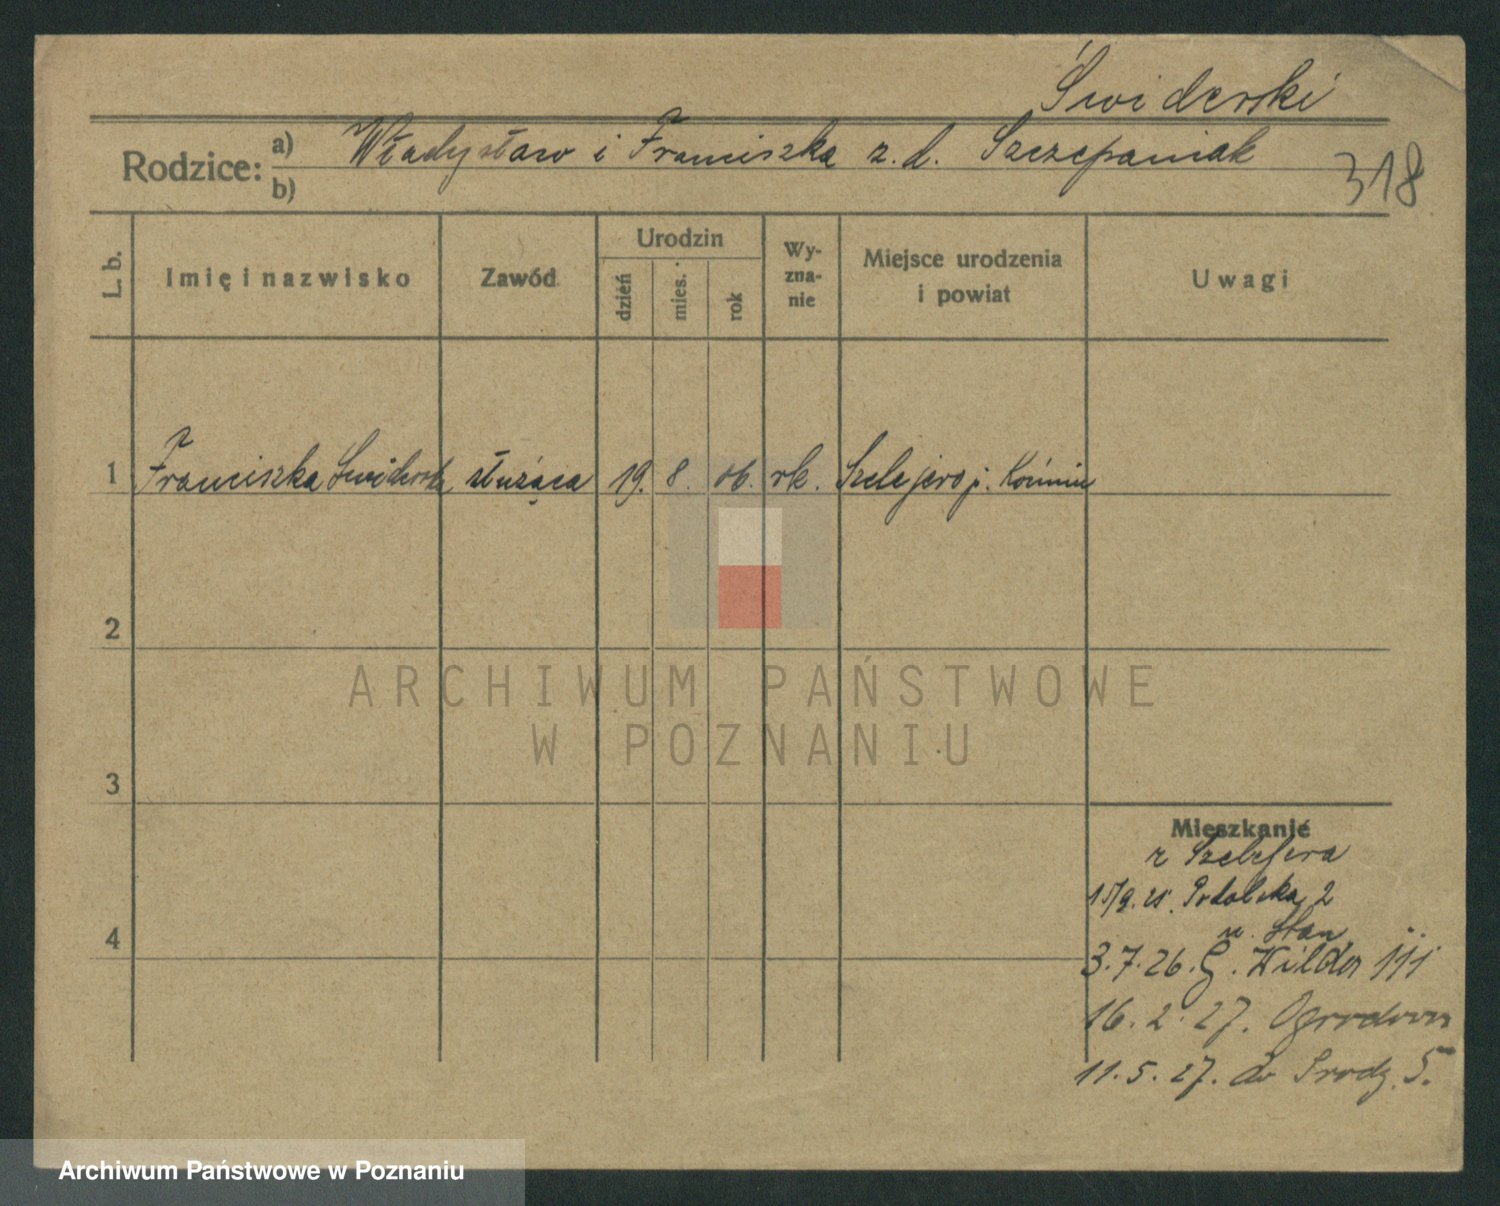 Świderski
Rodzice: a) Władysław i Franciszka z. d. Szczepaniak
b)
318
L. b.
Imię i nazwisko
Zawód
Urodzin
dzień
mies.
rok
Wy-
zna-
nie
Miejsce urodzenia
i powiat
Uwagi
1 Franciszka Świderska służąca 19. 8. 06. rk. Szelejewo p. Koźmin
2
ARCHIWUM PAŃSTWOWE
W POZNANIU
3
Mieszkanie
z Szelejewa
15/9. 25. Podolska 2
4
u. Stan
3.7.26. G. Wilda 111
16. 2. 27. Ogrodowa
11. 5. 27. do 5.
Archiwum Państwowe w Poznaniu